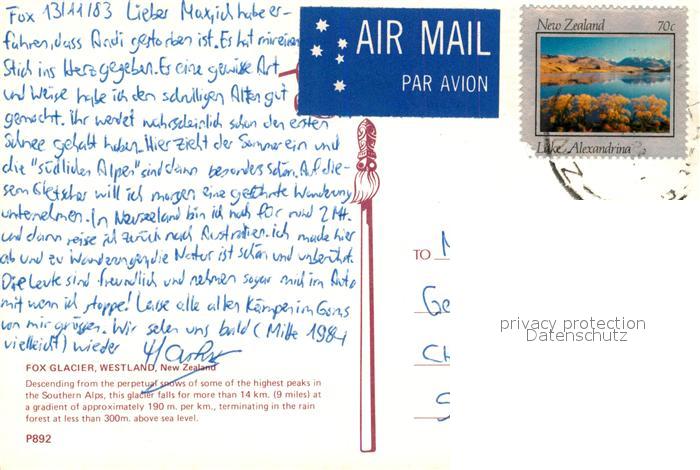 Fox 13/11/83 Lieber Max, ich habe er-
fahren, dass Andi gestorben ist. Es hat mir einen
Stich ins Herz gegeben. Es eine gewisse Art
und Weise habe ich den schrulligen Alten gut
gemocht. Ihr werdet wahrscheinlich schon den ersten
Schnee gehabt haben. Hier zieht der Sommer ein und
die "südlichen Alpen" sind dann besonders schön. Auf die-
sem Gletscher will ich morgen eine geführte Wanderung
unternehmen. In Neuseeland bin ich noch für rund 2 Mt.
und dann reise ich zurück nach Australien. Ich mache hier
ab und zu Wanderungen, die Natur ist schön und unberührt.
Die Leute sind freundlich und nehmen sogar mich im Auto
mit wenn ich stoppe! Lasse alle alten Kämpen im Goms
von mir grüssen. Wir sehen uns bald (Mitte 1984
vielleicht) wieder
AIR MAIL
PAR AVION
New Zealand 70c
Lake Alexandrina
TO
privacy protection
Datenschutz
FOX GLACIER, WESTLAND, New Zealand
Descending from the perpetual snows of some of the highest peaks in
the Southern Alps, this glacier falls for more than 14 km. (9 miles) at
a gradient of approximately 190 m. per km., terminating in the rain
forest at less than 300m. above sea level.
P892